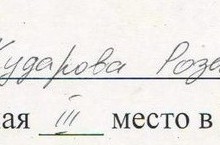 Кударова Роза
ная III место в